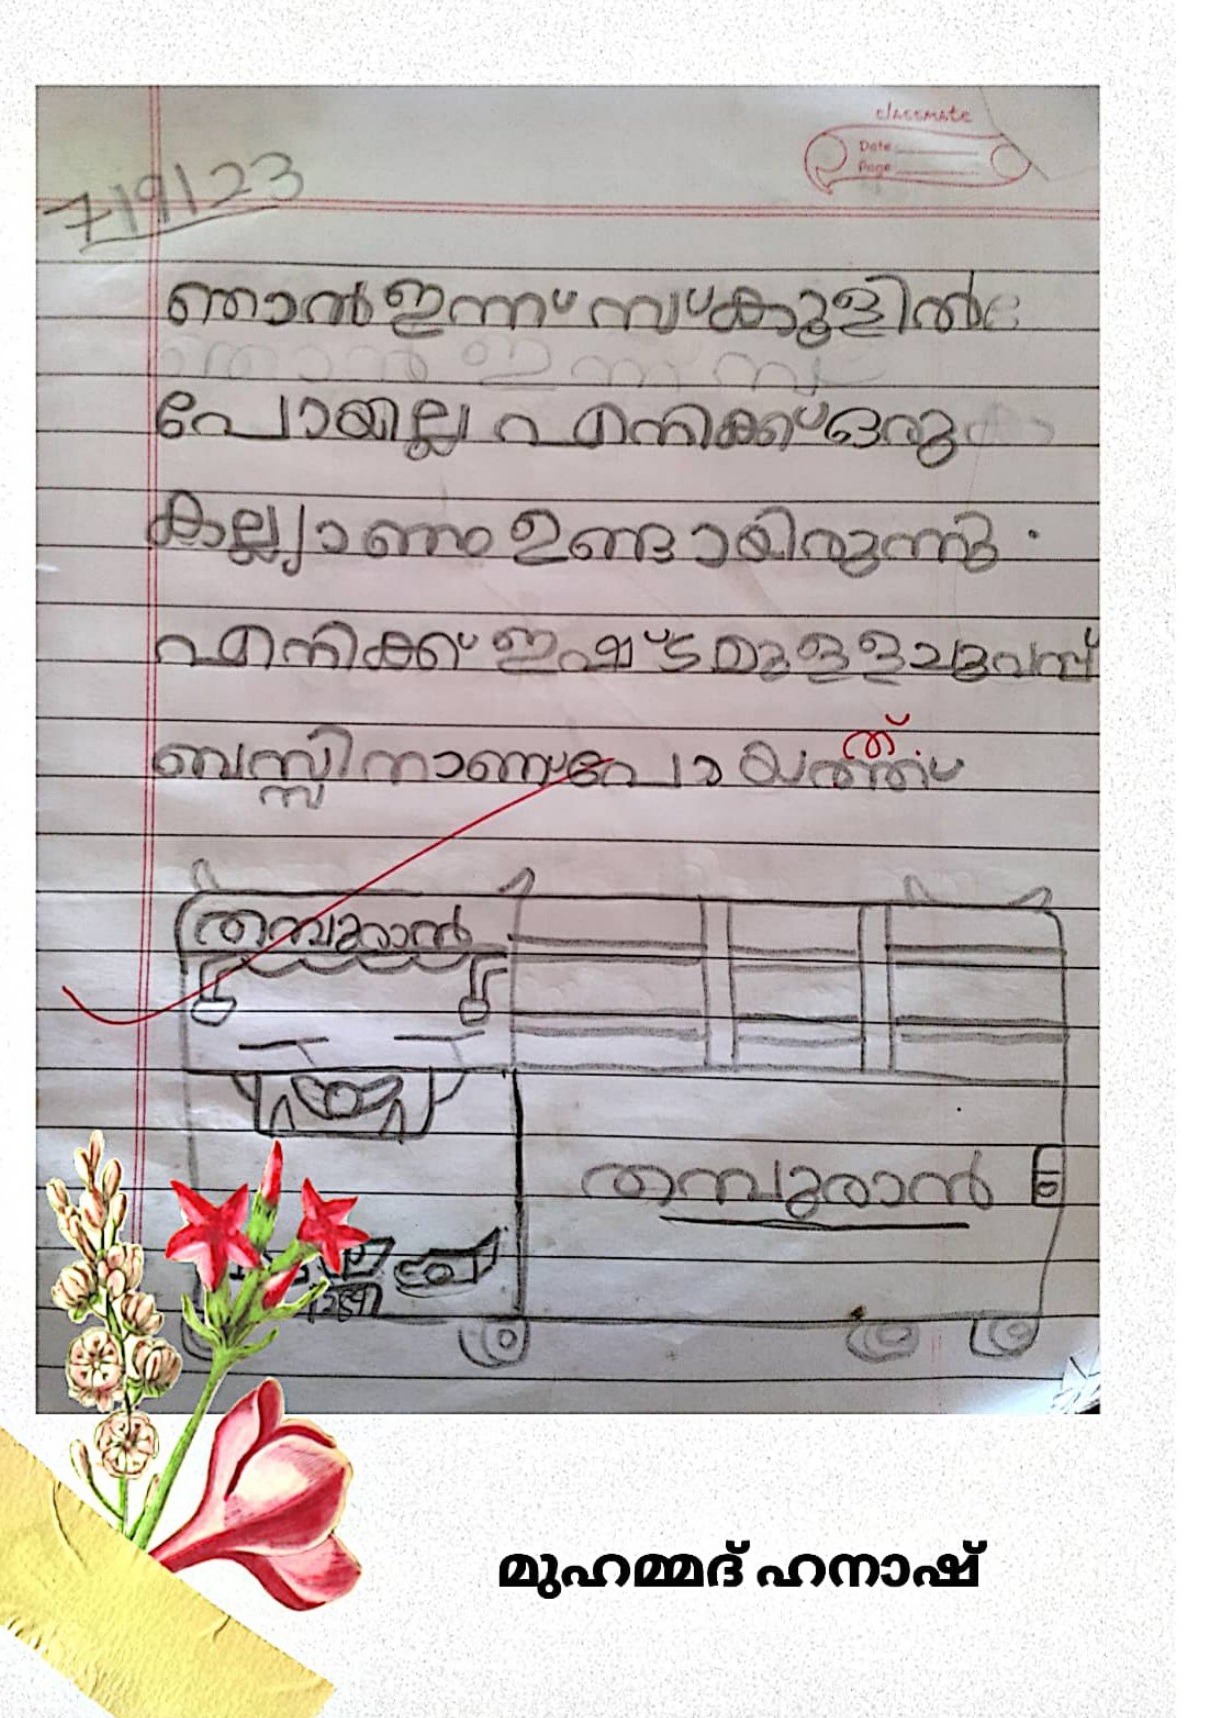 classmate
Date
Page
7/9/23
ഞാൻ ഇന്ന് സ്കൂളിൽ
പോയില്ല എനിക്ക് ഒരു
കല്ല്യാണം ഉണ്ടായിരുന്നു.
എനിക്ക് ഇഷ്ട മുള്ള
ത്.
ബസ്സിനാണ് പോയത്ത്
തമ്പുരാൻ
തമ്പുരാൻ
മുഹമ്മദ് ഹനാഷ്